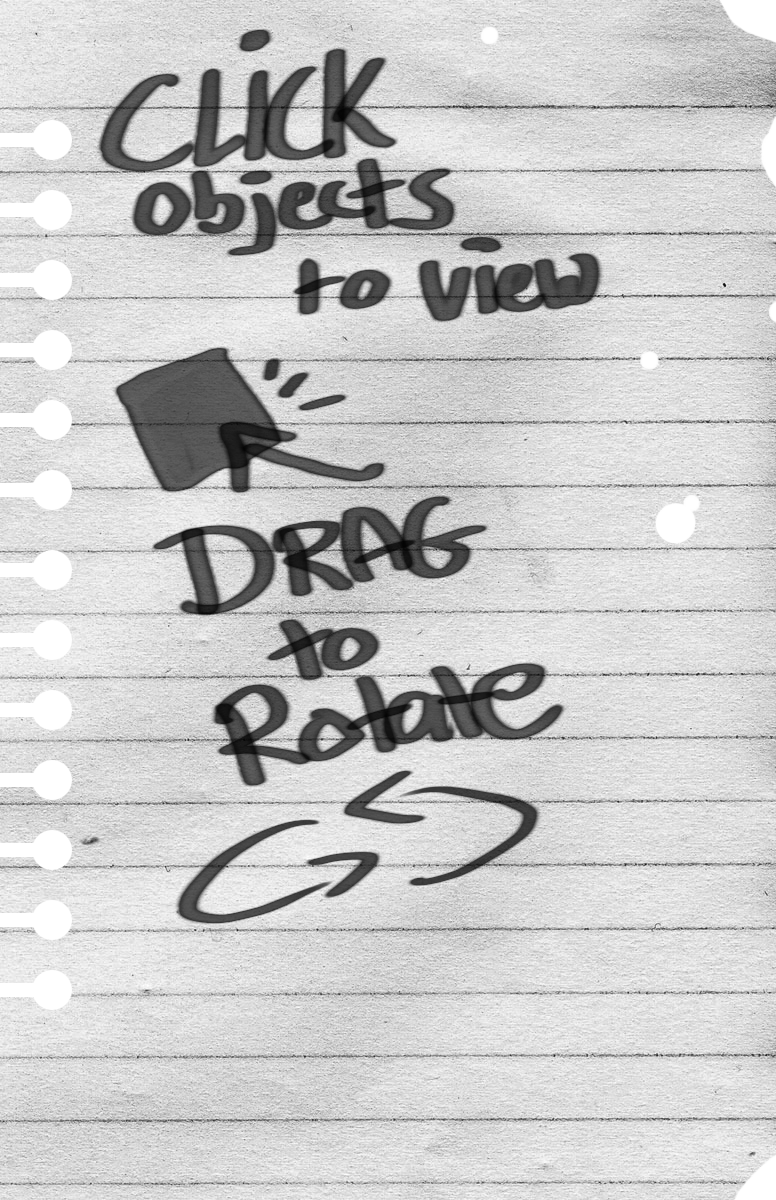 CLiCK
objects
to view
DRAG
to
Rotate